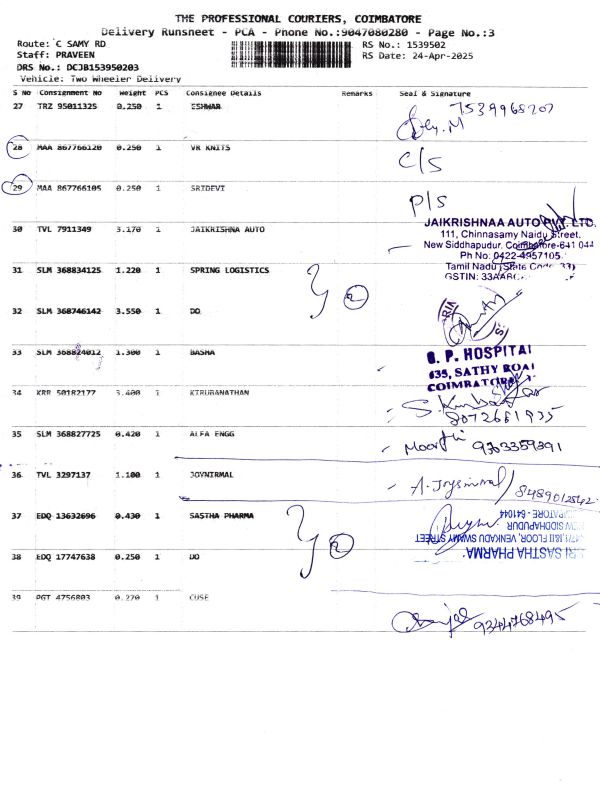 THE PROFESSIONAL COURIERS, COIMBATORE
Delivery Runsheet - PCA - Phone No.:9047080280 - Page No.:3
Route: C SAMY RD RS No.: 1539502
Staff: PRAVEEN RS Date: 24-Apr-2025
DRS No.: DCJB153950203
Vehicle: Two Wheeler Delivery
S No Consignment No Weight PCS Consignee Details Remarks Seal & Signature
27 TRZ 95011325 0.250 1 ESHWAR 7539968207
28 MAA 867766120 0.250 1 VR KNITS C/S
29 MAA 867766105 0.250 1 SRIDEVI P/S
30 TVL 7911349 3.170 1 JAIKRISHNA AUTO
JAIKRISHNAA AUTO PVT. LTD.
111, Chinnasamy Naidu Street,
New Siddhapudur, Coimbatore-641 044
Ph No: 0422-4957105
Tamil Nadu (State Code 33)
GSTIN: 33AABC
31 SLM 368834125 1.220 1 SPRING LOGISTICS 2
32 SLM 368746142 3.550 1 DO
33 SLM 368824012 1.300 1 BASHA
G. P. HOSPITAL
635, SATHY ROAD
COIMBATORE
34 KRR 50182177 3.400 1 KIRUBANATHAN
9072661935
35 SLM 368827725 0.420 1 ALFA ENGG Moorthi 9363359391
36 TVL 3297137 1.100 1 JOYNIRMAL A. Joysnirmal 8489012542
37 EDQ 13632696 0.430 1 SASTHA PHARMA 2
SRI SASTHA PHARMA
47/1, I&II FLOOR, VENKADU SWAMY STREET
NEW SIDDHAPUDUR
COIMBATORE - 641044
38 EDQ 17747638 0.250 1 DO
39 PGT 4756803 0.270 1 CUSE 9344768495